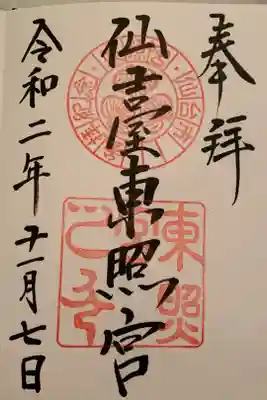 奉拝
仙臺東照宮
令和二年十一月七日
東照宮之印